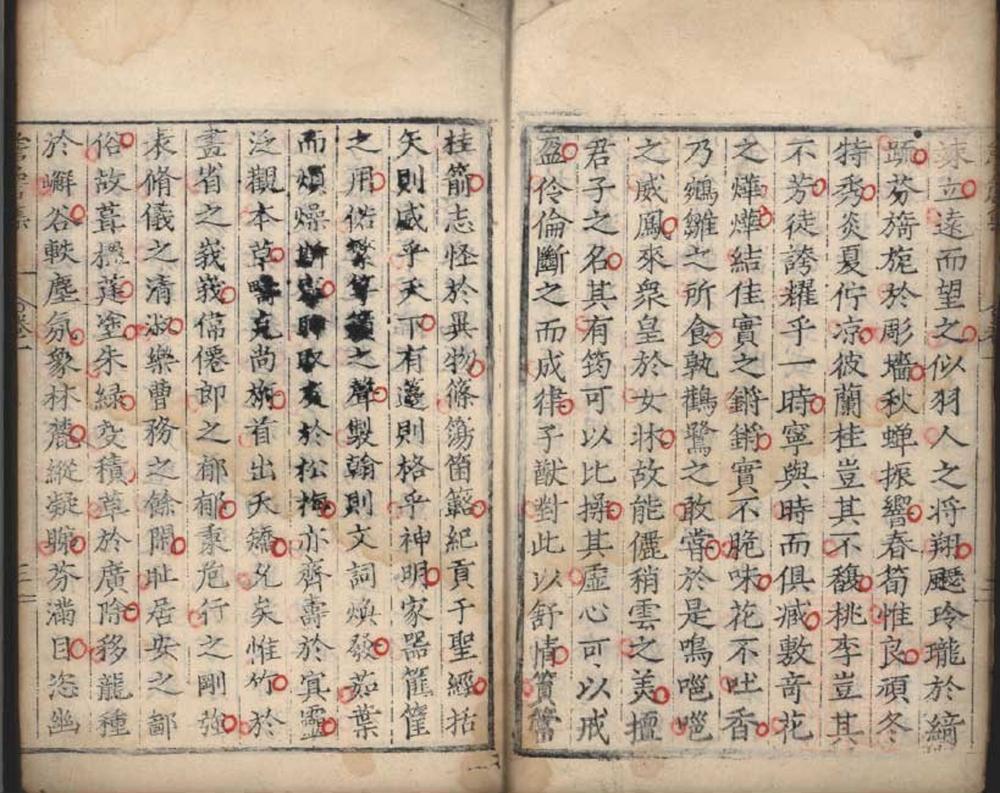 竦立遠而望之似羽人之将翔飋玲瓏於綺
䟽芬旖旎於彫墻秋蝉振響春筍惟良頑冬
特秀炎夏佇凉彼蘭桂豈其不馥桃李豈其
不芳徒誇耀乎一時寧與時而俱臧敷竒花
之燁燁結佳實之鏘鏘實不脆味花不吐香
乃鵷雛之所食孰鸛鷺之敢嘗於是鳴嗈嗈
之威鳳來衆皇於女牀故能儷稍雲之美擅
君子之名其有筠可以比操其虛心可以戒
盈伶倫斷之而成律子猷對此以舒情篔簹
桂箭志怪於異物篠簜箘簵紀貢于聖經括
矢則威乎天下有籩則格乎神明家器筐篚
之用俗繁竽之聲製翰則文詞煥發茹葉
而煩燥於松梅亦齊壽於冥靈
泛觀本草尚斾首出夭矯允矣惟竹於
晝省之峩峩偹僊郎之郁郁秉危行之剛強
表脩儀之清淑樂曹務之餘閒耻居安之鄙
俗故葺櫺蓬塗朱綠变積草於廣隂移龍種
於嶰谷軼塵氛象林麓縱凝眺芬滿目恣幽